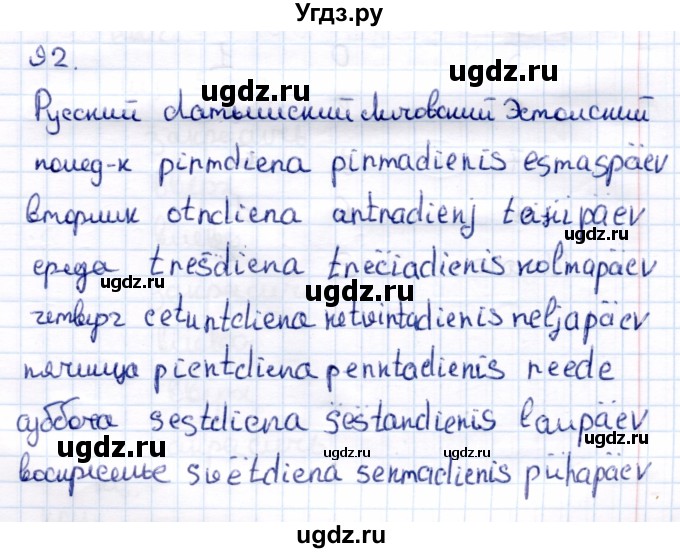 Угдз.ру
92.
ugdz.ru ugdz.ru
Русский Латышский Литовский Эстонский
ugdz.ru
понед-к pirmdiena pirmadienis esmaspäev
вторник otrdiena antradienj teisipäev
ugdz.ru
среда trešdiena trečiadienis kolmapäev
ugdz.ru ugdz.ru
четверг ceturtdiena ketvirtadienis neljapäev
пятница pientdiena penktadienis reede
суббота sestdiena šeštandienis laupäev
ugdz.ru ugdz.ru ugdz.ru
воскресенье svētdiena sekmadienis pühapäev
ugdz.ru